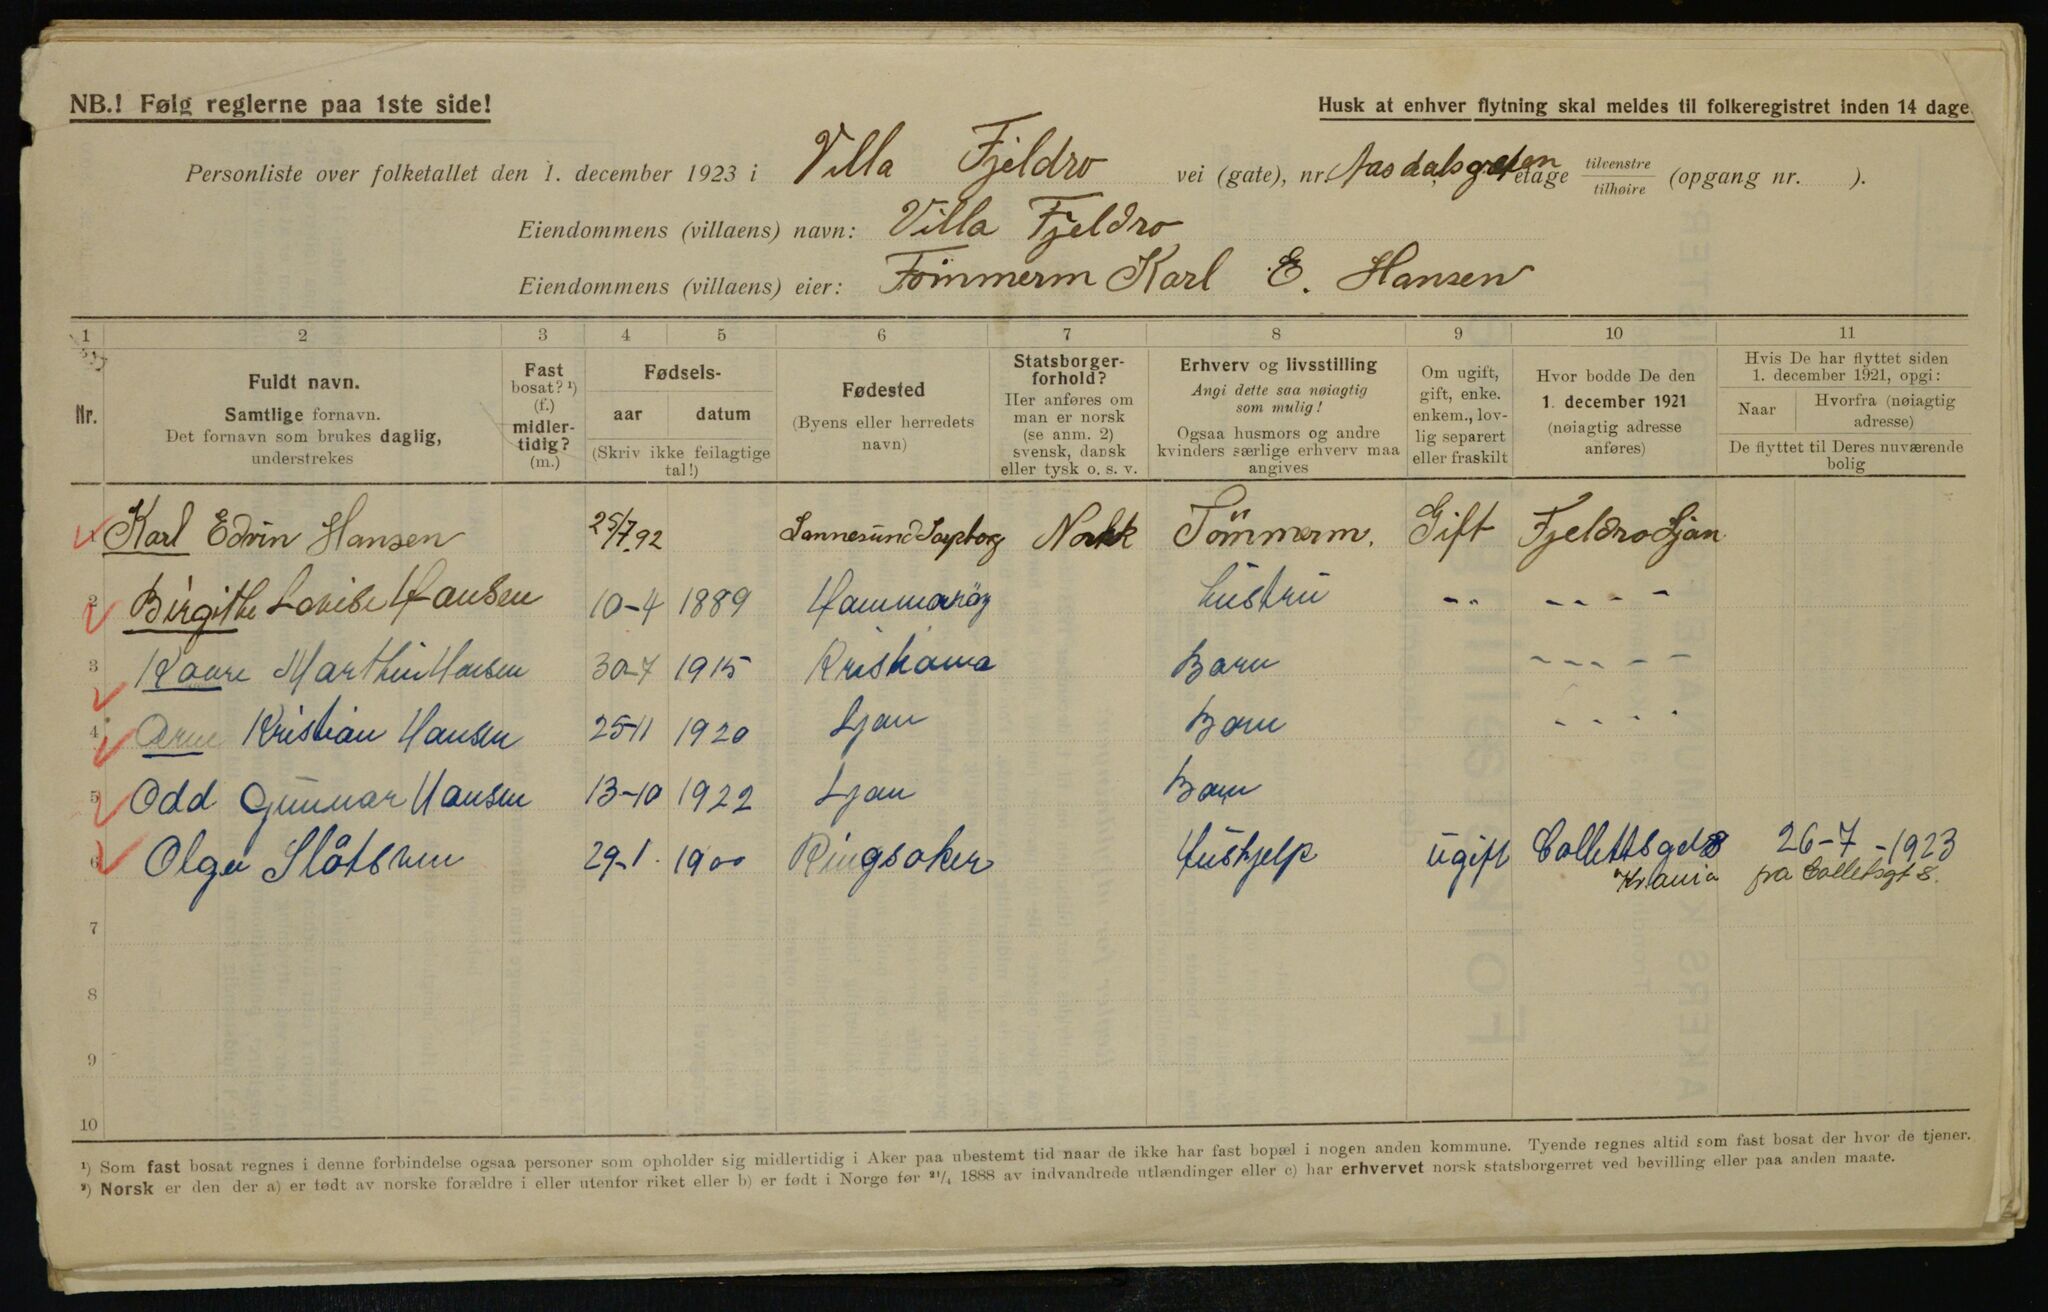 NB.! Følg reglerne paa 1ste side!
Husk at enhver flytning skal meldes til folkeregistret inden 14 dage.
Personliste over folketallet den 1. december 1923 i Villa Fjeldro vei (gate), nr. Aasdalsgaten etage tilvenstre tilhøire (opgang nr. ).
Eiendommens (villaens) navn: Villa Fjeldro
Eiendommens (villaens) eier: Tömmerm Karl E. Hansen
1 2 3 4 5 6 7 8 9 10 11
Nr.
Fuldt navn.
Samtlige fornavn.
Det fornavn som brukes daglig,
understrekes
Fast
bosat? ¹)
(f.)
midler-
tidig?
(m.)
Fødsels-
aar datum
(Skriv ikke feilagtige
tal!)
Fødested
(Byens eller herredets
navn)
Statsborger-
forhold?
Her anføres om
man er norsk
(se anm. 2)
svensk, dansk
eller tysk o. s. v.
Erhverv og livsstilling
Angi dette saa nøiagtig
som mulig!
Ogsaa husmors og andre
kvinders særlige erhverv maa
angives
Om ugift,
gift, enke.
enkem., lov-
lig separert
eller fraskilt
Hvor bodde De den
1. december 1921
(nøiagtig adresse
anføres)
Hvis De har flyttet siden
1. december 1921, opgi:
Naar
Hvorfra (nøiagtig
adresse)
De flyttet til Deres nuværende
bolig
Karl Edvin Hansen 25/7.92 Sannesund Sarpborg Norsk Tömmerm. Gift Fjeldro Ljan
2 Birgithe Lovise Hansen 10-4 1889 Hammaröy hüstrü - .. - - - -
3 Kaare Marthin Hansen 30-7 1915 Kristiania Barn - - - - -
4 Arne Kristian Hansen 25-11 1920 Ljan Barn - - - -
5 Odd Gunnar Hansen 13-10 1922 Ljan Barn
6 Olga Slåtsveen 29-1. 1900 Ringsaker Hüshjelp ügift Collettsgt 8 26-7-1923
Kr.ania fra Colletsgt 8.
7
8
9
10
¹) Som fast bosat regnes i denne forbindelse ogsaa personer som opholder sig midlertidig i Aker paa ubestemt tid naar de ikke har fast bopæl i nogen anden kommune. Tyende regnes altid som fast bosat der hvor de tjener.
²) Norsk er den der a) er født av norske forældre i eller utenfor riket eller b) er født i Norge før ²¹/₄ 1888 av indvandrede utlændinger eller c) har erhvervet norsk statsborgerret ved bevilling eller paa anden maate.